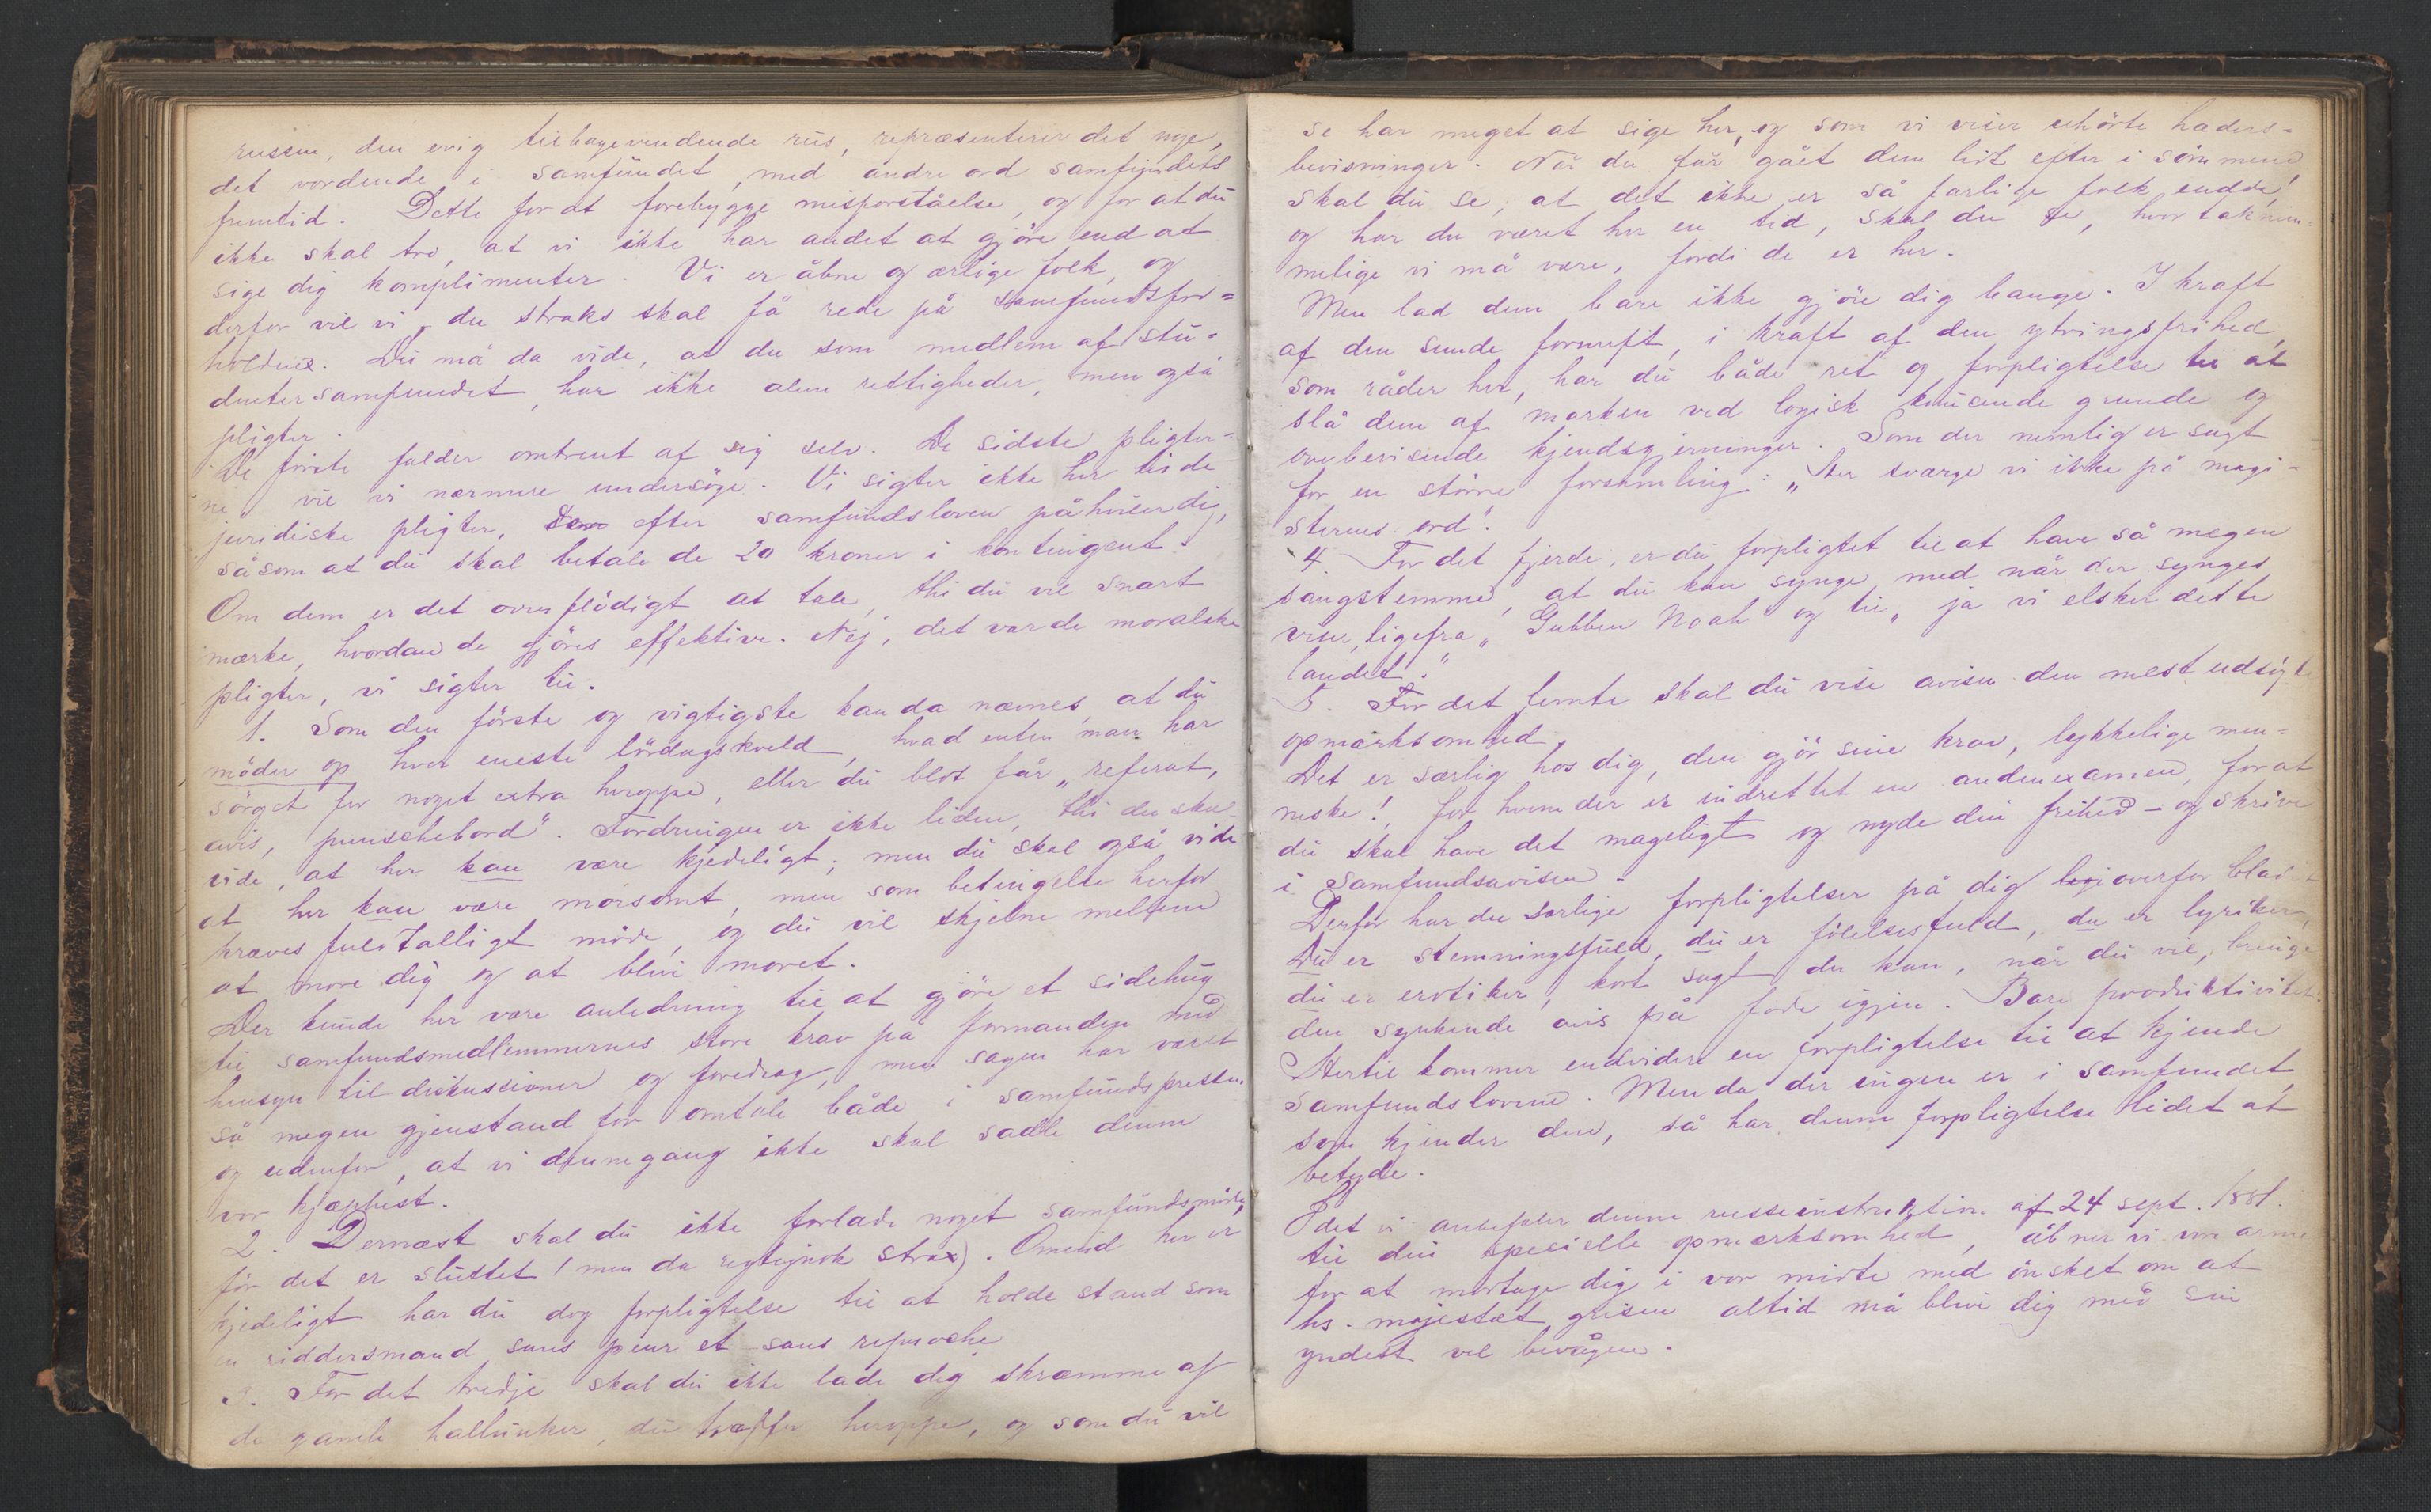 russen, den evig tilbagevendende rus, repræsenterer det nye,
det vordende i samfundet, med andre ord samfundets
fremtid. Dette for at forebygge misforståelse, og for at du
ikke skal tro, at vi ikke har andet at gjöre end at
sige dig komplimenter. Vi er åbne og ærlige folk, og
derfor vil vi, du straks skal få rede på samfundsfor=
holdene. Du må da vide, at du som medlem af stu=
dentersamfundet, har ikke alene rettigheder, men også
pligter.
De første falder omtrent af sig selv. De sidste pligter=
ne vil vi nærmere undersöge. Vi sigter ikke her til de
juridiske pligter, som efter samfundsloven påhviler dig,
såsom at du skal betale de 20 kroner i kontingent.
Om dem er det overflödigt at tale, thi du vil snart
mærke, hvordan de gjöres effektive. Nej, det var de moralske
pligter, vi sigter til.
1. Som den förste og vigtigste kan da nævnes, at du
möder op hver eneste lördagskveld, hvad enten man har
sörget for noget extra heroppe, eller du blot får „referat,
avis, punschebord“. Fordringen er ikke liden, thi du skal
vide, at her kan være kjedeligt; men du skal også vide
at her kan være morsomt, men som betingelse herfor
kræves fuldtalligt möde, og du vil skjelne mellem
at more dig og at blive moret.
Der kunde her være anledning til at gjöre et sidehug
til samfundsmedlemmernes store krav på formanden med
hensyn til diskussioner og foredrag, men sagen har været
så megen gjenstand for omtale både i samfundspressen
og udenfor, at vi denne gang ikke skal sadle denne
vor kjæphest.
2. Dernæst skal du ikke forlade noget samfundsmöde,
för det er sluttet (men da rigtignok strax). Omend her er
kjedeligt har du dog forpligtelse til at holde stand som
en riddersmand sans peur et sans reproche
3. For det tredje skal du ikke lade dig skræmme af
de gamle hallunker, du træffer heroppe, og som du vil
se har meget at sige her, og som vi viser uhörte hæders=
bevisninger. Når du får gået dem lidt efter i sömmene,
skal du se, at det ikke er så farlige folk endda,
og har du været her en tid, skal du se, hvor taknem=
melige vi må være, fordi de er her.
Men lad dem bare ikke gjöre dig bange. I kraft
af den sunde fornuft, i kraft af den ytringsfrihed,
som råder her, har du både ret og forpligtelse til at
slå dem af marken ved logisk knusende grunde og
overbevisende kjendsgjerninger. Som der nemlig er sagt
for en större forsamling: „Her sværge vi ikke på magi=
sterens ord“.
4. For det fjerde, er du forpligtet til at have så megen
sangstemme, at du kan synge med når der synges
viser, ligefra „Gubben Noah og til „ja vi elsker dette
landet.“
5. For det femte skal du vise avisen den mest udsögte
opmærksomhed.
Det er særlig hos dig, den gjör sine krav, lykkelige men=
neske!, for hvem der er indrettet en andenexamen, for at
du skal have det mageligt og nyde din frihed – og skrive
i Samfundsavisen.
Derfor har du særlige forpligtelser på dig ligeoverfor bladet
Du er stemningsfuld, du er fölelsesfuld, du er lyriker,
du er erotiker, kort sagt du kan, når du vil, bringe
den synkende avis på fode igjen. Bare produktivitet.
Hertil kommer endvidere en forpligtelse til at kjende
samfundsloven. Men da der ingen er i samfundet,
som kjender den, så har denne forpligtelse lidet at
betyde.
Idet vi anbefaler denne russeinstruktion af 24 sept. 1881.
til din specielle opmærksomhed, åbner vi vore arme
for at modtage dig i vor midte med önsket om at
hs. majestæt grisen altid må blive dig med sin
yndest vel bevågen.